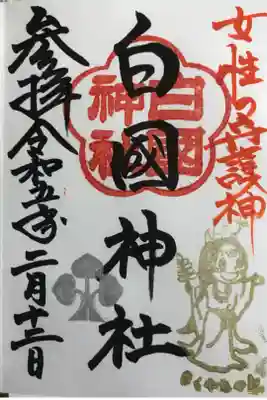 女性の守護神
白國神社
白國神社
参拝令和五年二月十三日